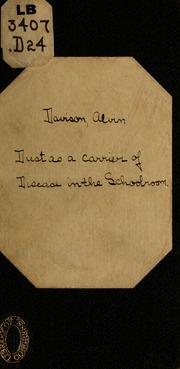 LB
3407
.D24
Davison, Alvin
Dust as a carrier of
Disease in the Schoolroom